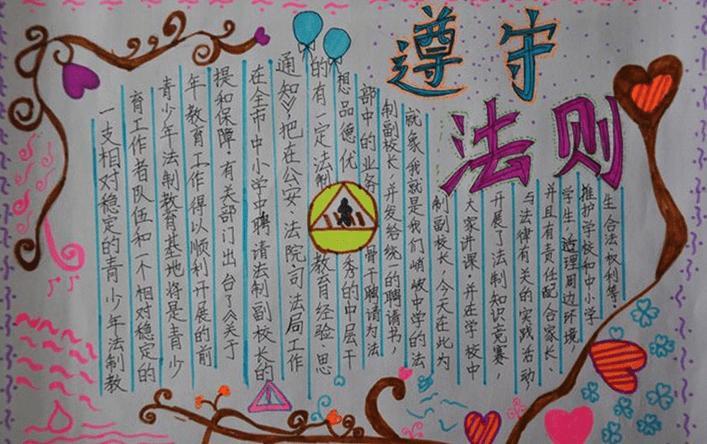 遵守
法则
一支相对稳定的青少年法制教
育工作者队伍和一个相对稳定的
青少年法制教育基地将是青少
年教育工作得以顺利开展的前
提和保障,有关部门出台了《关于
在全市中小学中聘请法制副校长的
通知》,把在公安、法院司法局工作
的有一定法制教育经验,思
想品德优秀的中层干
部中的业务骨干聘请为法
制副校长,并发给统一的聘请书,
就象我就是我们峭岐中学的法
制副校长,今天在此为
大家讲课,并在学校中
开展了法制知识竞赛,
与法律有关的实践活动
并且有责任配合家长、
学生,理周边环境,
维护学校和中小学
生合法权利等.